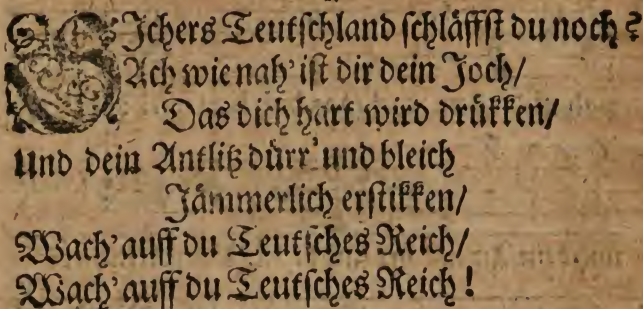 SIchers Teutschland schläffst du noch?
Ach wie nah' ist dir dein Joch/
Das dich hart wird drükken/
Und dein Antlitz dürr' und bleich
Jämmerlich erstikken/
Wach' auff du Teutsches Reich/
Wach' auff du Teutsches Reich!